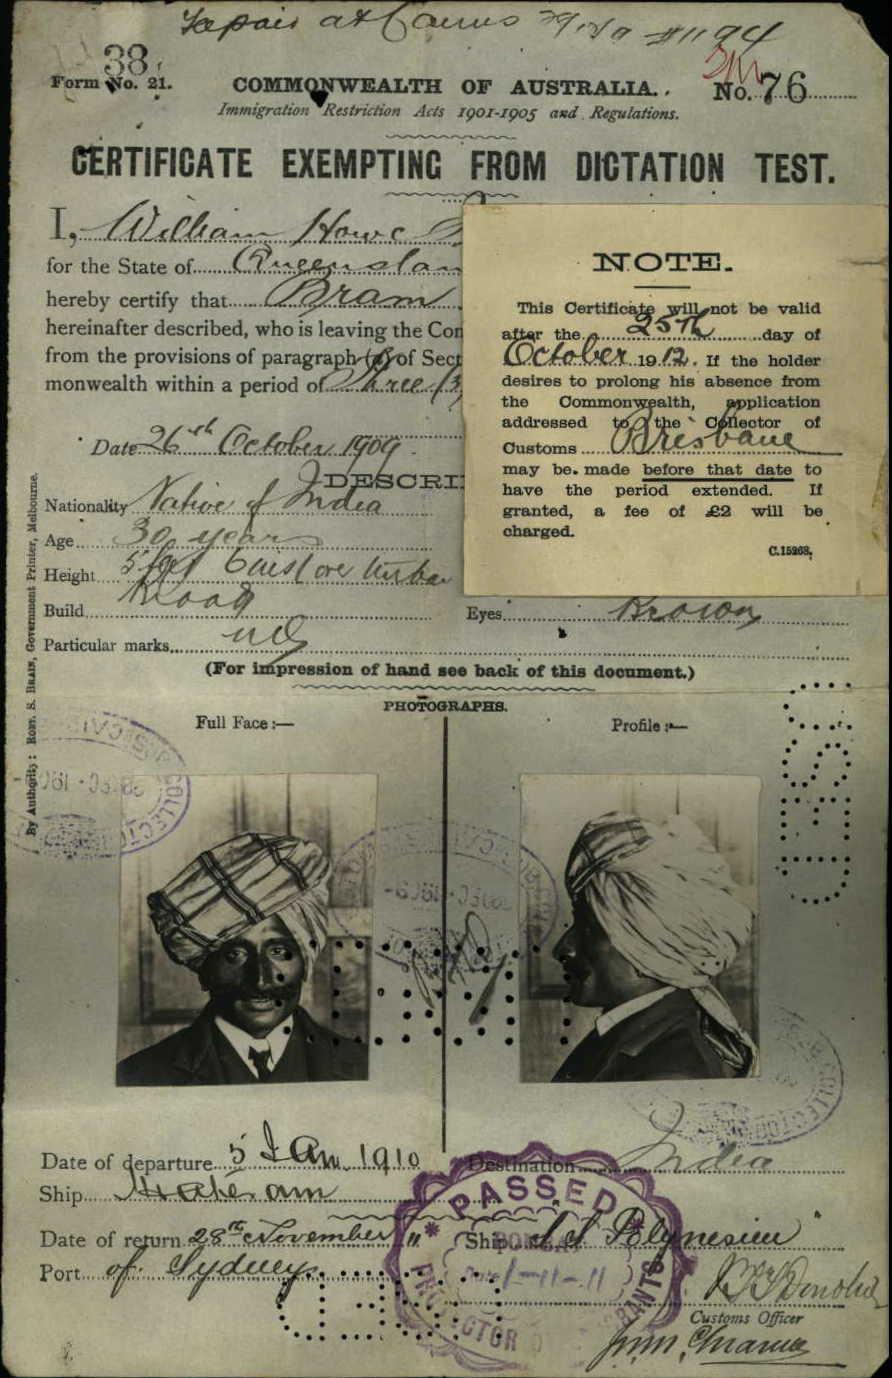 38.
Form No. 21.
COMMONWEALTH OF AUSTRALIA.
No. 76
Immigration Restriction Acts 1901-1905 and Regulations.
CERTIFICATE EXEMPTING FROM DICTATION TEST.
I, William Howe
for the State of Queenslan
hereby certify that Bram
hereinafter described, who is leaving the Com
from the provisions of paragraph (a) of Sect
monwealth within a period of Three (3)
Date 26th October 1909.
DESCRI
Nationality Native of India
Age 30 years
Height 5 feet 6 ins over turban
Build
Particular marks
NOTE.
This Certificate will not be valid
after the 25th day of
October 1912. If the holder
desires to prolong his absence from
the Commonwealth, application
addressed to the Collector of
Customs Brisbane
may be made before that date to
have the period extended. If
granted, a fee of £2 will be
charged.
C.15268.
Eyes Brown
(For impression of hand see back of this document.)
PHOTOGRAPHS.
Full Face :—
Profile :—
By Authority: ROBT. S. BRAIN, Government Printer, Melbourne.
Date of departure 5 JAN. 1910
Destination India
Ship
Date of return 28th November "
Ship "S.S. Polynesien"
Port of Sydney
PASSED
1-11-11
PROTECTOR
Customs Officer